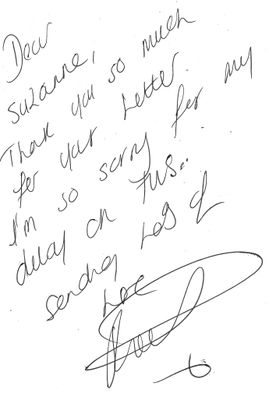 Dear
Suzanne,
Thank you so much
for your letter.
I'm so sorry for my
delay on this..
sending lots of
love